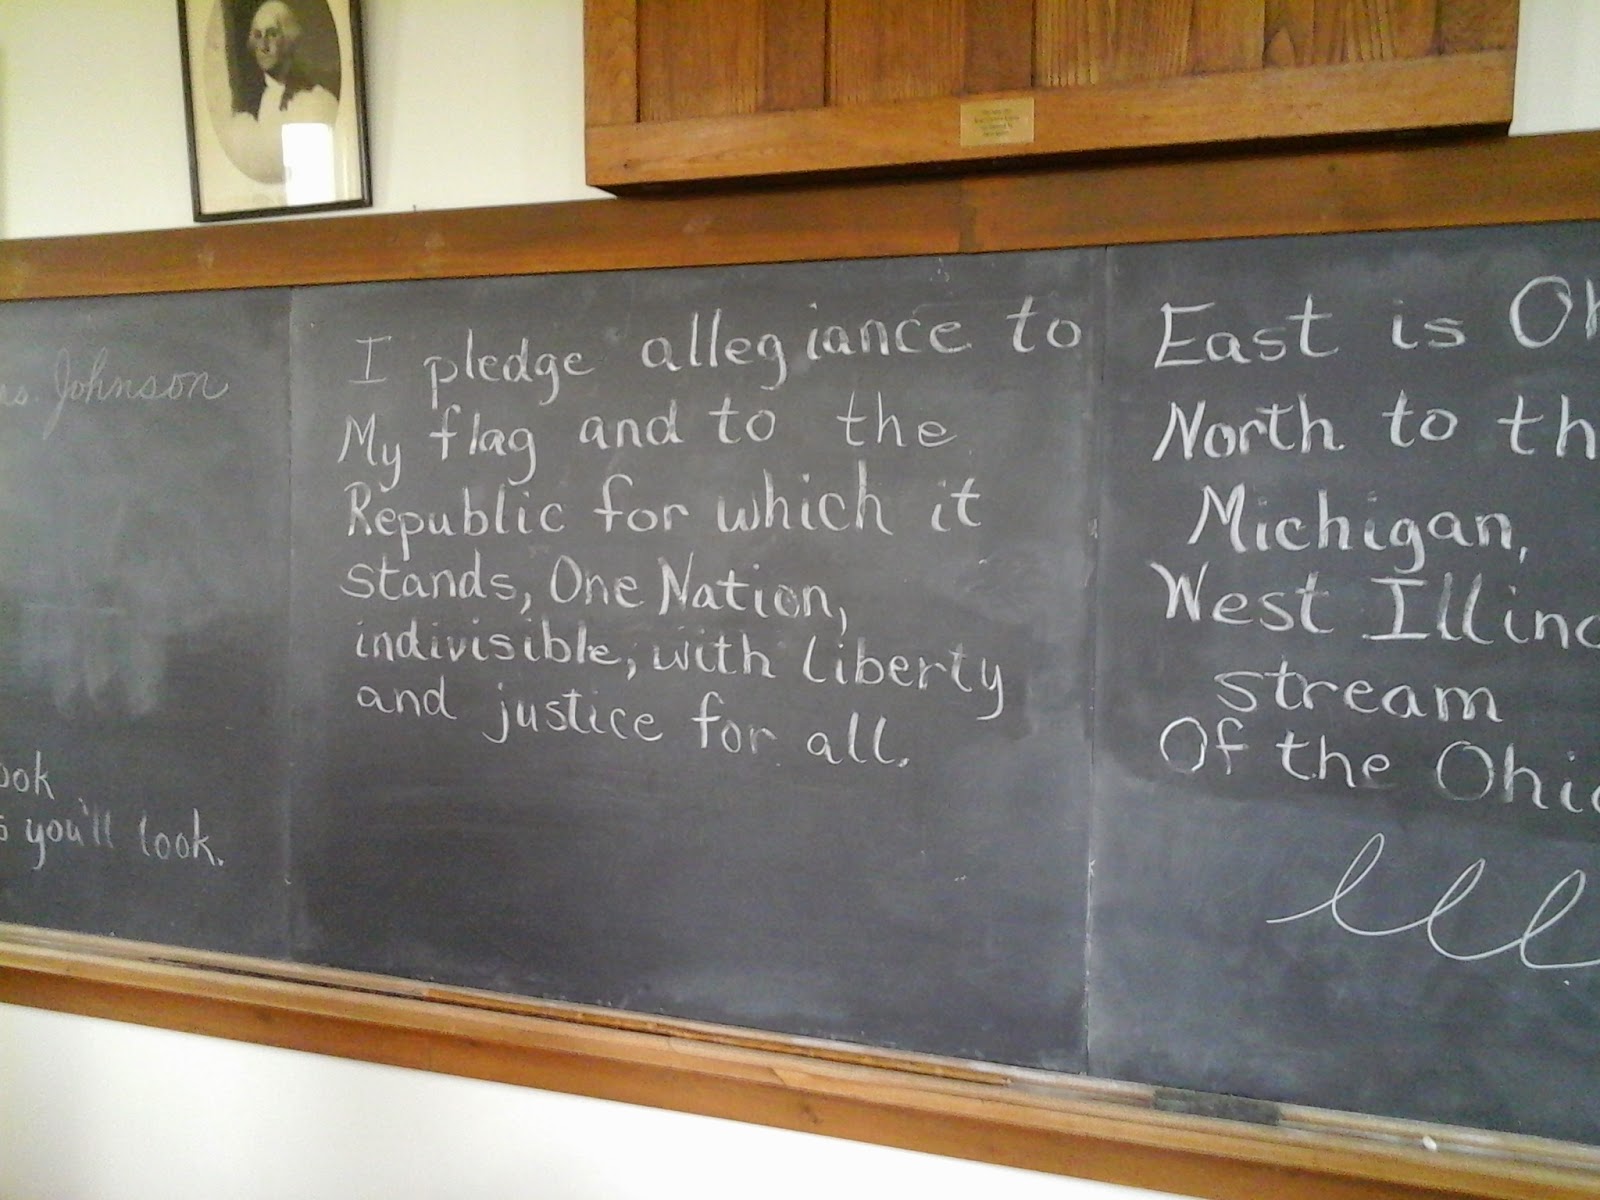 Johnson
you'll look.
I pledge allegiance to
My flag and to the
Republic for which it
stands, One Nation,
indivisible, with liberty
and justice for all.
East is
North to
Michigan,
West
stream
Of the
lll